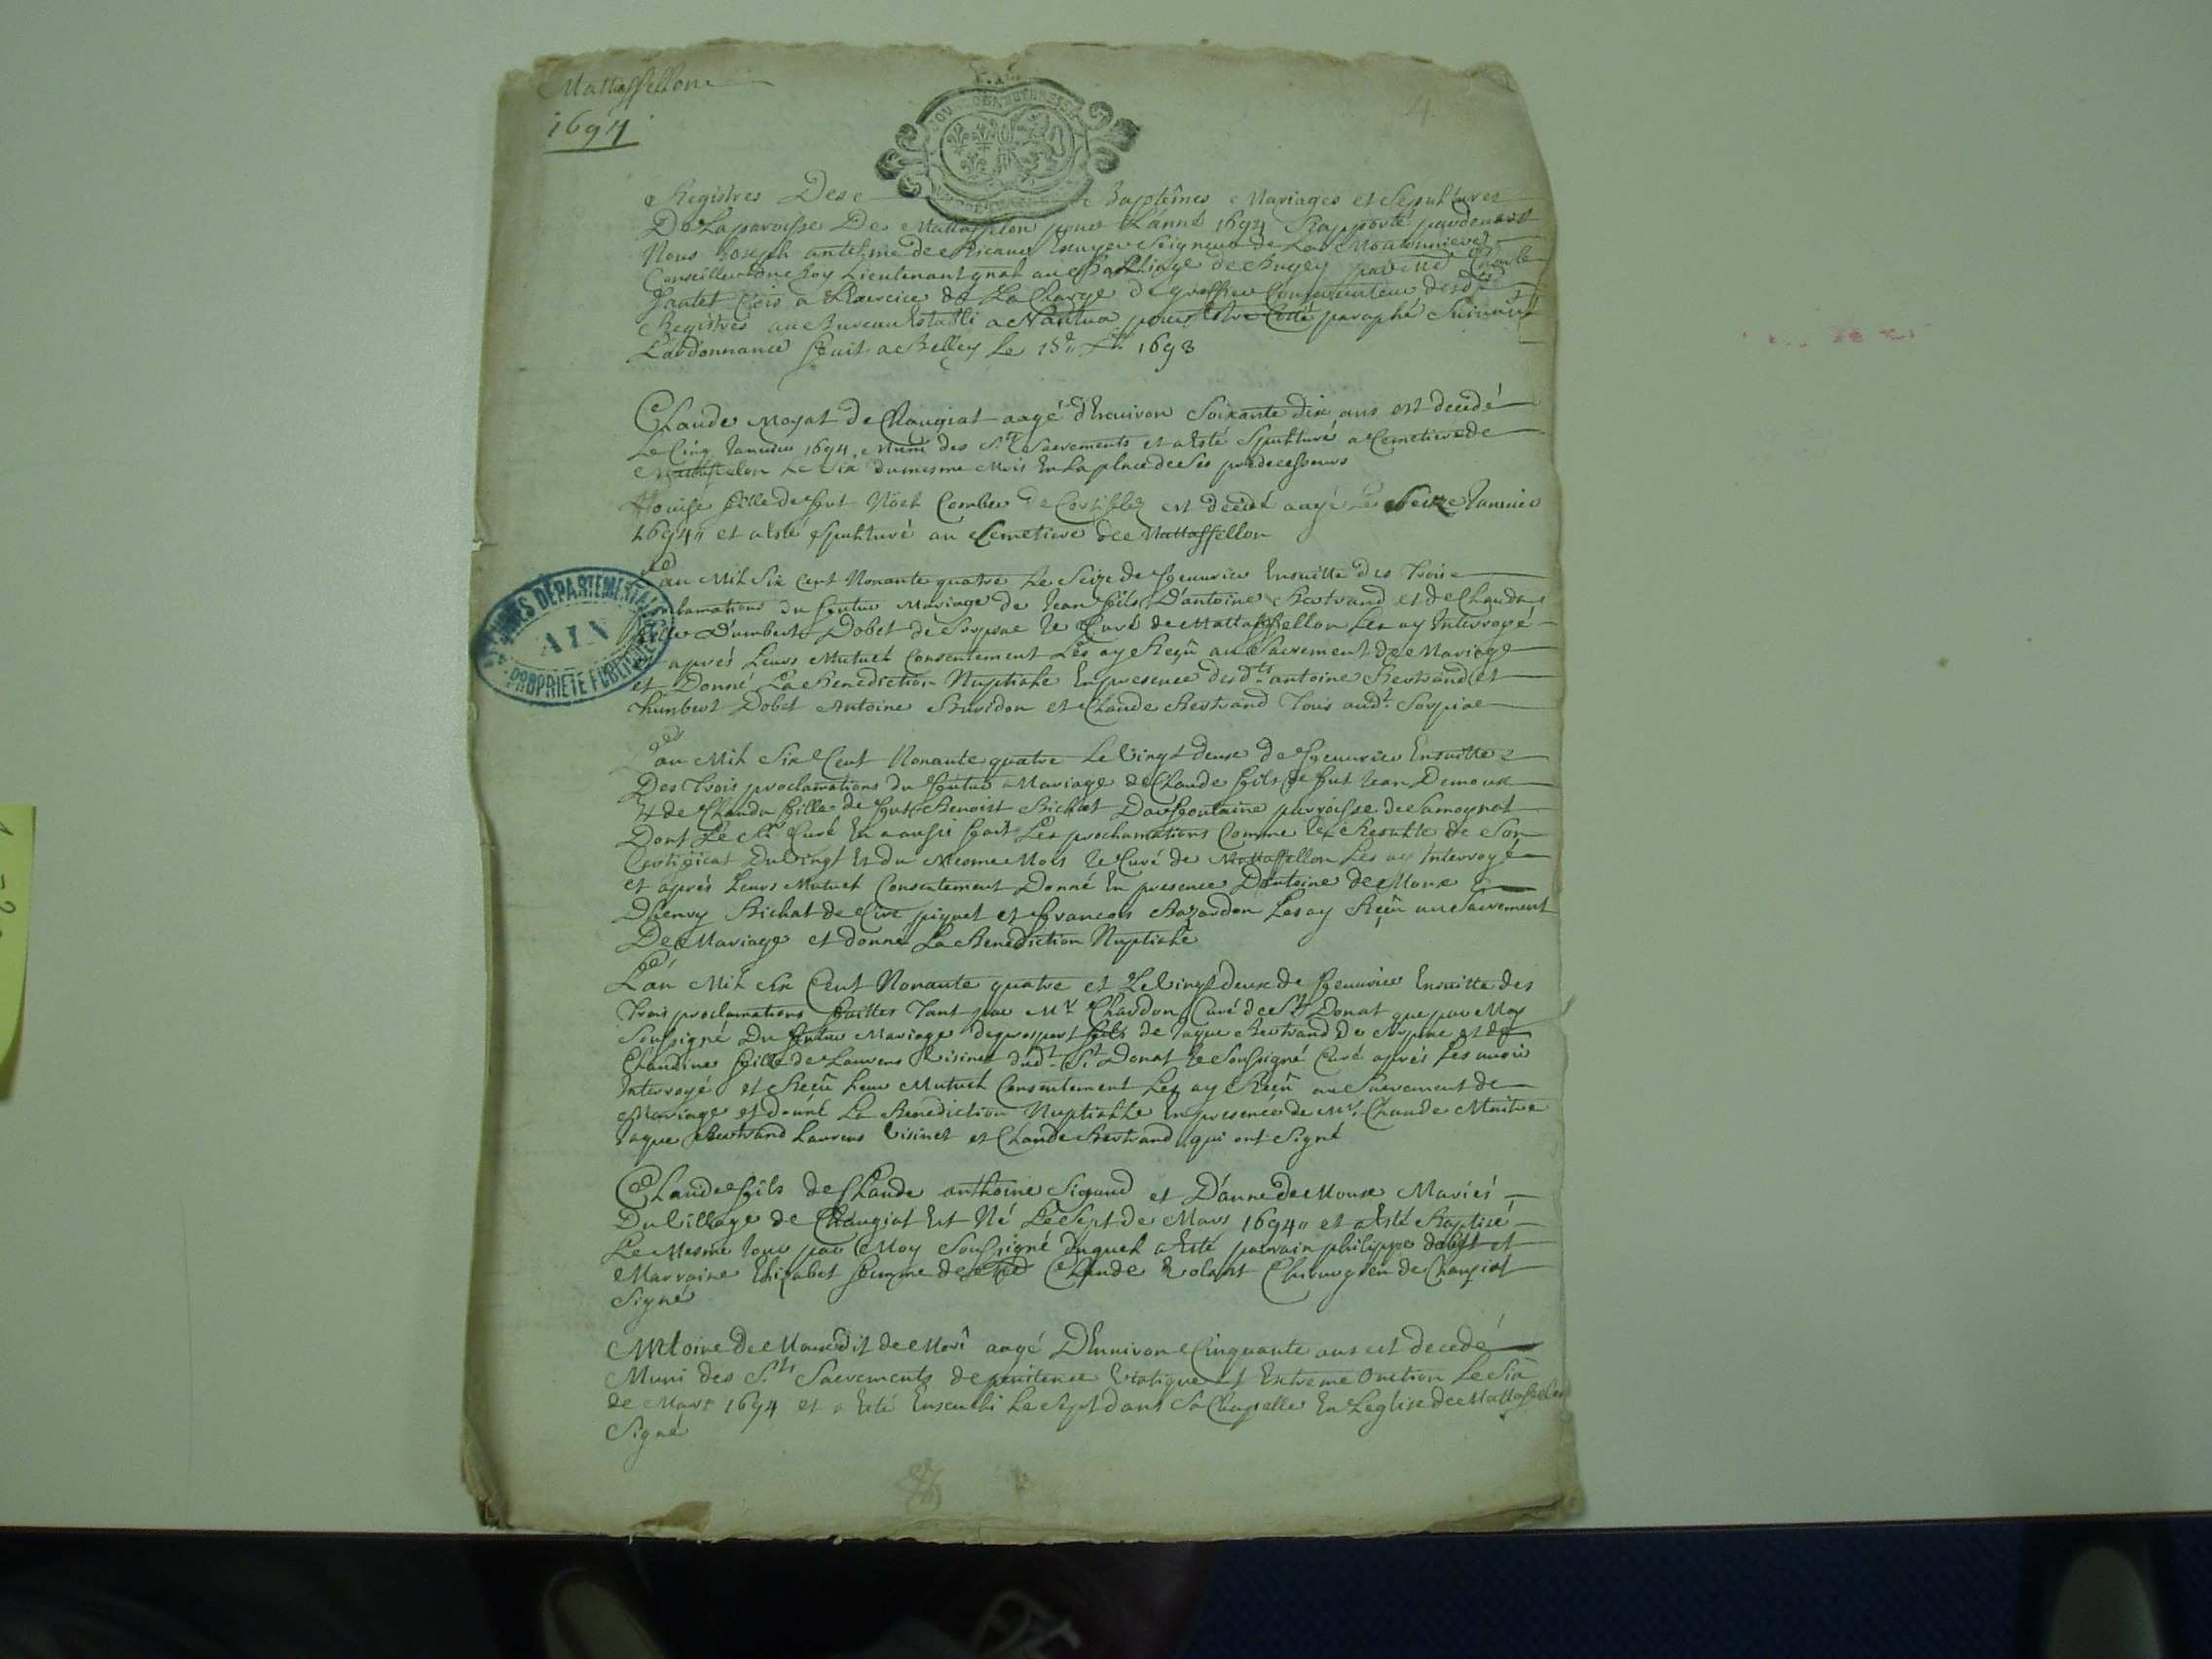 Mattaffellon
1694
4
Registres Des Baptêmes Mariages et Sepultures
De La paroisse De Mattaffelon pour L'anné 1694 Rapporté pardevant
Nous Joseph antelme de Escuyer Seigneur de La
Conseiller du Roy Lieutenant gnal au Balliage de Bugey par
a L'Exercice de La Charge de greffier Conservateur desd
Registres au Bureau Establi a Nantua pour Estre Cotté paraphé Suivant
L'ordonnance fait a Belley Le 1693
Claude Moyat de Chaugiat aagé d'Environ Soixante dix ans est decedé
Le Cinq Janvier 1694. Muni des Sts Sacrements et a Esté Sepulturé a Cemetiere de
Mattaffelon Le Six du mesme Mois En La place de Ses predecesseurs
fille de fut Nöel Combes de est decedé aagé Le Seize Janvier
1694 et a Esté Sepulturé au Cemetiere de Mattaffellon
L'an Mil Six Cent Nonante quatre Le Seize de Jeanvier Ensuitte des Trois
proclamations du futur Mariage de Jean fils D'antoine Bertrand et de Claudine
fille D'umbert Dobet de Sorpiae Je Curé de Mattaffellon Les ay Interrogé
et aprés Leurs Mutuel Consentement Les ay Reçû au Sacrement de Mariage
et Donné La Benediction Nuptiale En presence desdts antoine Bertrand et
humbert Dobet Antoine et Claude Bertrand Tous audt Sorpiae
L'an Mil Six Cent Nonante quatre Le Vingt deux de Jeanvier Ensuitte
Des Trois proclamations du futur Mariage de Claude fils de fut Jean Demoux
Et de Clauda fille de fut Benoist Bichat parroisse de Samognat
Dont Le Sr Curé En a aussi fait Les proclamations Comme Il Resulte de Son
Certificat Du Vingt Et du Mesme Mois Je Curé de Mattaffellon Les ay Interrogé
et aprés Leurs Mutuel Consentement Donné En presence D'antoine de Moux
D'henry Bichat de et francois Les ay Reçû au Sacrement
De Mariage et donné La Benediction Nuptiale
L'an Mil Six Cent Nonante quatre et Le Vingt deux de Jeanvier Ensuitte des
Trois proclamations faittes Tant par Mr Chardon Curé de St Donat que par Moy
Soussigné Du futur Mariage de prospert fils de Jaque Bertrand de Sorpiae et de
Claudine fille de Laurens Visinet dudt St Donat Je Soussigné Curé aprés Les avoir
Interrogé et Reçû Leur Mutuel Consentement Les ay Reçû au Sacrement de
Mariage et donné La Benediction Nuptiale En presence de Mr Claude Maitre
Jaque Bertrand Laurens Visinet et Claude Bertrand qui ont Signé
Claude fils de Claude anthoine Sigaud et D'anne de Moux Mariés
Du Village de Chaugiat Est Né Le Sept de Mars 1694 et a Esté Baptisé
Le Mesme Jour par Moy Soussigné duquel a Esté parrain philippe dobet et
Marraine Elizabet femme de Claude Volant Chirurgien de Chaugiat
Signé
Antoine De Moux dit de aagé D'Environ Cinquante ans est decedé
Muni des Sts Sacrements de penitence Viatique et Extreme Onction Le Six
de Mars 1694 et a Esté Enseveli Le Sept dans Sa Chapelle En L'eglise de Mattaffelon
Signé
ARCHIVES DEPARTEMENTALES
AIN
PROPRIETE PUBLIQUE